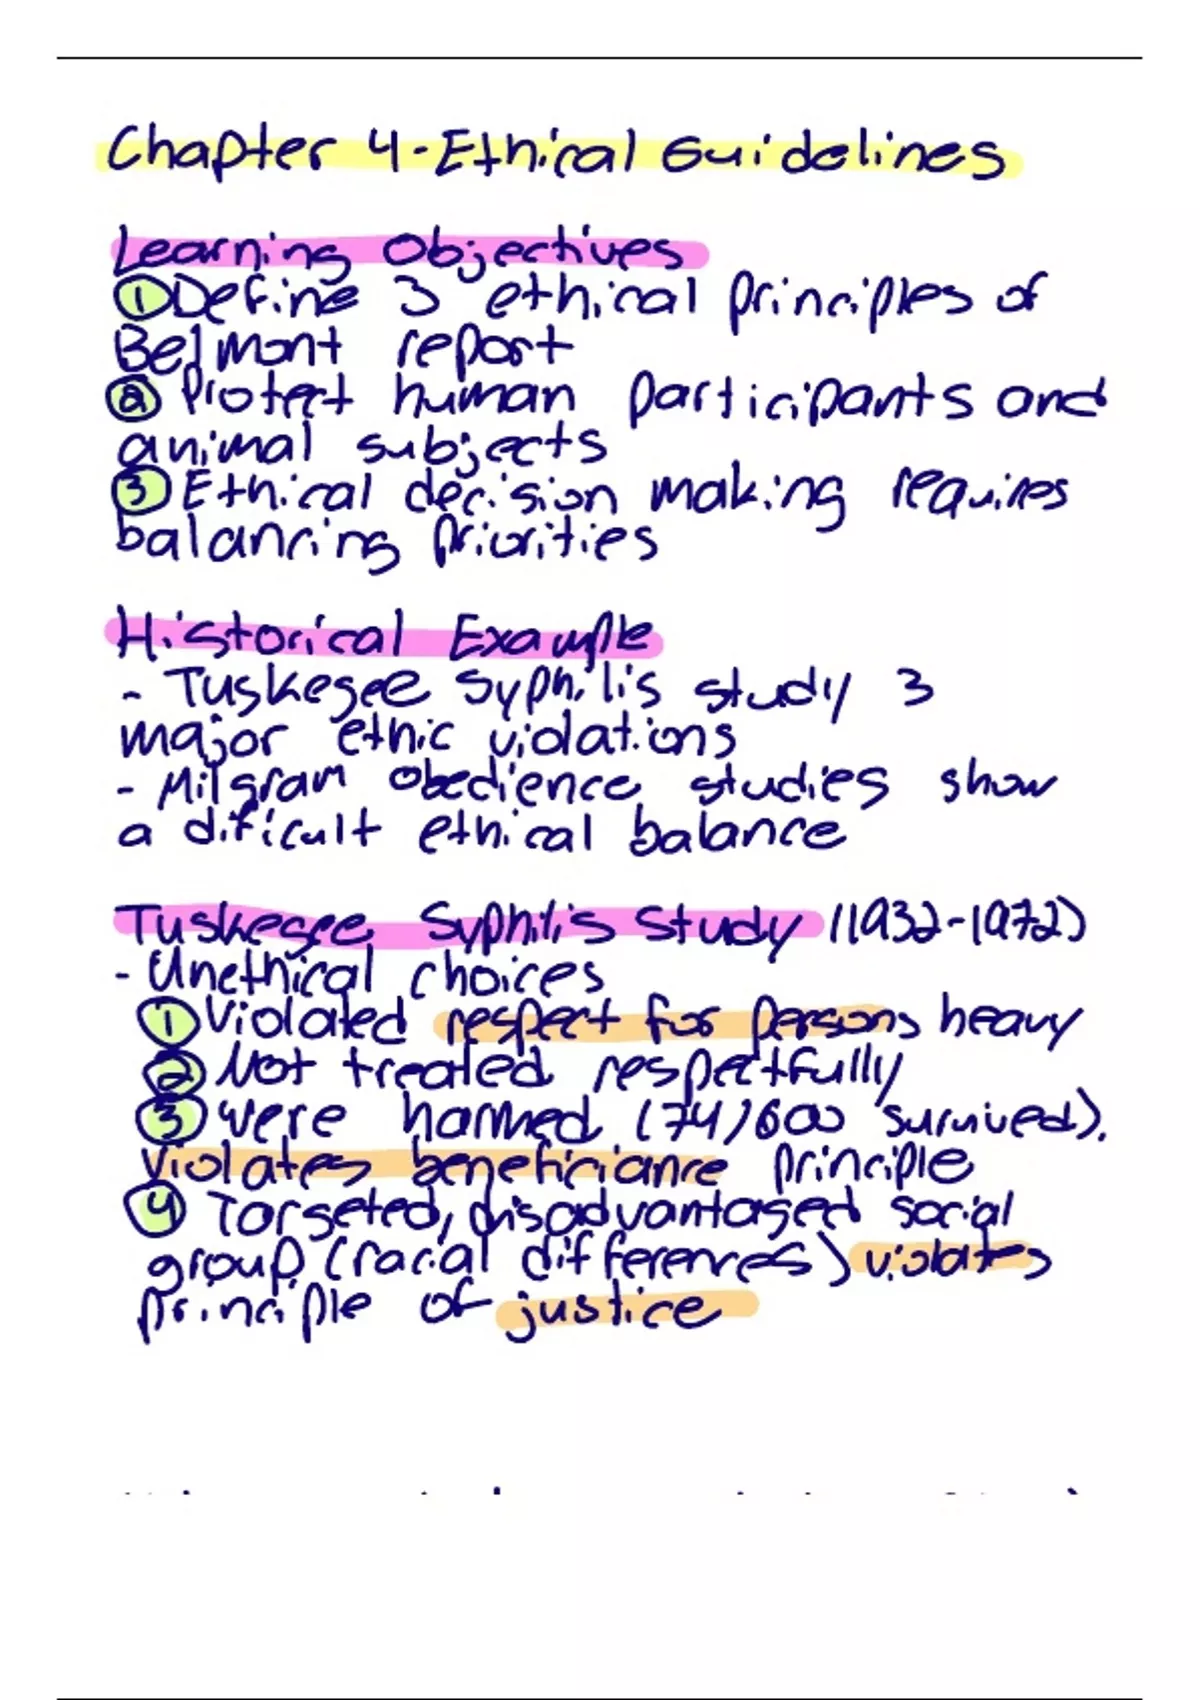 Chapter 4-Ethical Guidelines
Learning Objectives
① Define 3 ethical principles of
Belmont report
② Protect human participants and
animal subjects
③ Ethical decision making requires
balancing priorities
Historical Example
- Tuskegee Syphilis study 3
major ethic violations
- Milgram obedience studies show
a dificult ethical balance
Tuskegee Syphilis Study (1932-1972)
- Unethical choices
① Violated respect for persons heavy
② Not treated respectfully
③ were harmed (74/600 survived).
violates beneficiance principle
④ Targeted, disadvantaged social
group (racial differences) violates
principle of justice